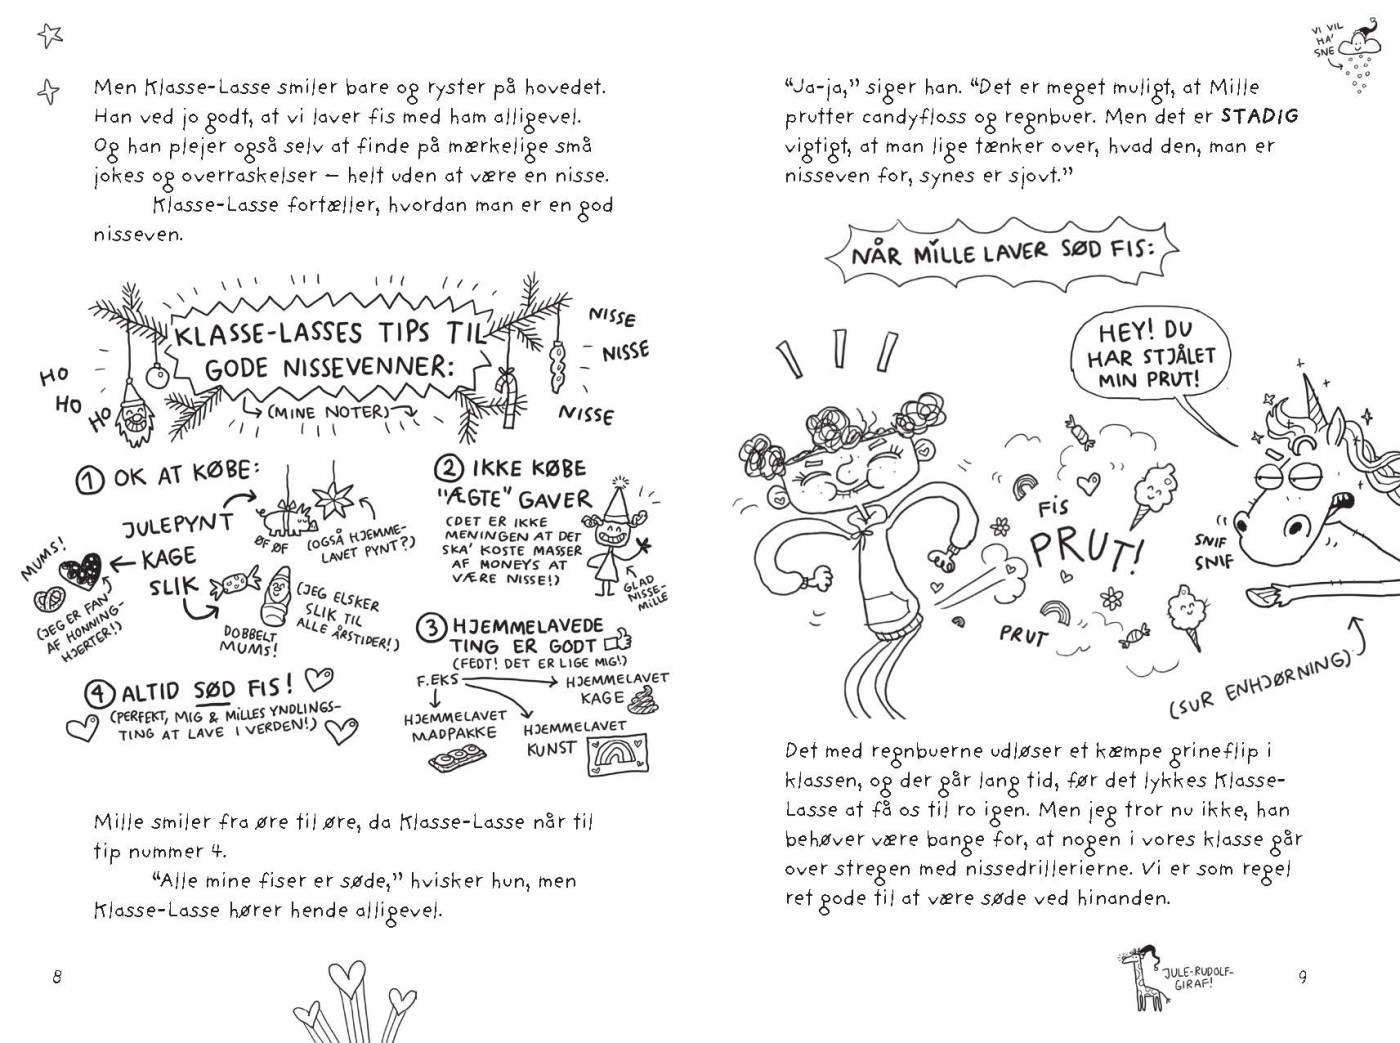 Men Klasse-Lasse smiler bare og ryster på hovedet.
Han ved jo godt, at vi laver fis med ham alligevel.
Og han plejer også selv at finde på mærkelige små
jokes og overraskelser – helt uden at være en nisse.
Klasse-Lasse fortæller, hvordan man er en god
nisseven.
KLASSE-LASSES TIPS TIL
GODE NISSEVENNER:
(MINE NOTER)
HO
HO
HO
NISSE
NISSE
NISSE
1 OK AT KØBE:
JULEPYNT
ØF ØF
(OGSÅ HJEMME-
LAVET PYNT?)
KAGE
MUMS!
(JEG ER FAN
AF HONNING-
HJERTER!)
SLIK
DOBBELT
MUMS!
(JEG ELSKER
SLIK TIL
ALLE ÅRSTIDER!)
2 IKKE KØBE
"ÆGTE" GAVER
(DET ER IKKE
MENINGEN AT DET
SKA' KOSTE MASSER
AF MONEYS AT
VÆRE NISSE!)
GLAD
NISSE-
MILLE
3 HJEMMELAVEDE
TING ER GODT
(FEDT! DET ER LIGE MIG!)
F.EKS
HJEMMELAVET
KAGE
HJEMMELAVET
MADPAKKE
HJEMMELAVET
KUNST
4 ALTID SØD FIS!
(PERFEKT, MIG & MILLES YNDLINGS-
TING AT LAVE I VERDEN!)
Mille smiler fra øre til øre, da Klasse-Lasse når til
tip nummer 4.
“Alle mine fiser er søde,” hvisker hun, men
Klasse-Lasse hører hende alligevel.
8
VI VIL
HA'
SNE
“Ja-ja,” siger han. “Det er meget muligt, at Mille
prutter candyfloss og regnbuer. Men det er STADIG
vigtigt, at man lige tænker over, hvad den, man er
nisseven for, synes er sjovt.”
NÅR MILLE LAVER SØD FIS:
HEY! DU
HAR STJÅLET
MIN PRUT!
FIS
PRUT!
PRUT
SNIF
SNIF
(SUR ENHJØRNING)
Det med regnbuerne udløser et kæmpe grineflip i
klassen, og der går lang tid, før det lykkes Klasse-
Lasse at få os til ro igen. Men jeg tror nu ikke, han
behøver være bange for, at nogen i vores klasse går
over stregen med nissedrillerierne. Vi er som regel
ret gode til at være søde ved hinanden.
JULE-RUDOLF-
GIRAF!
9